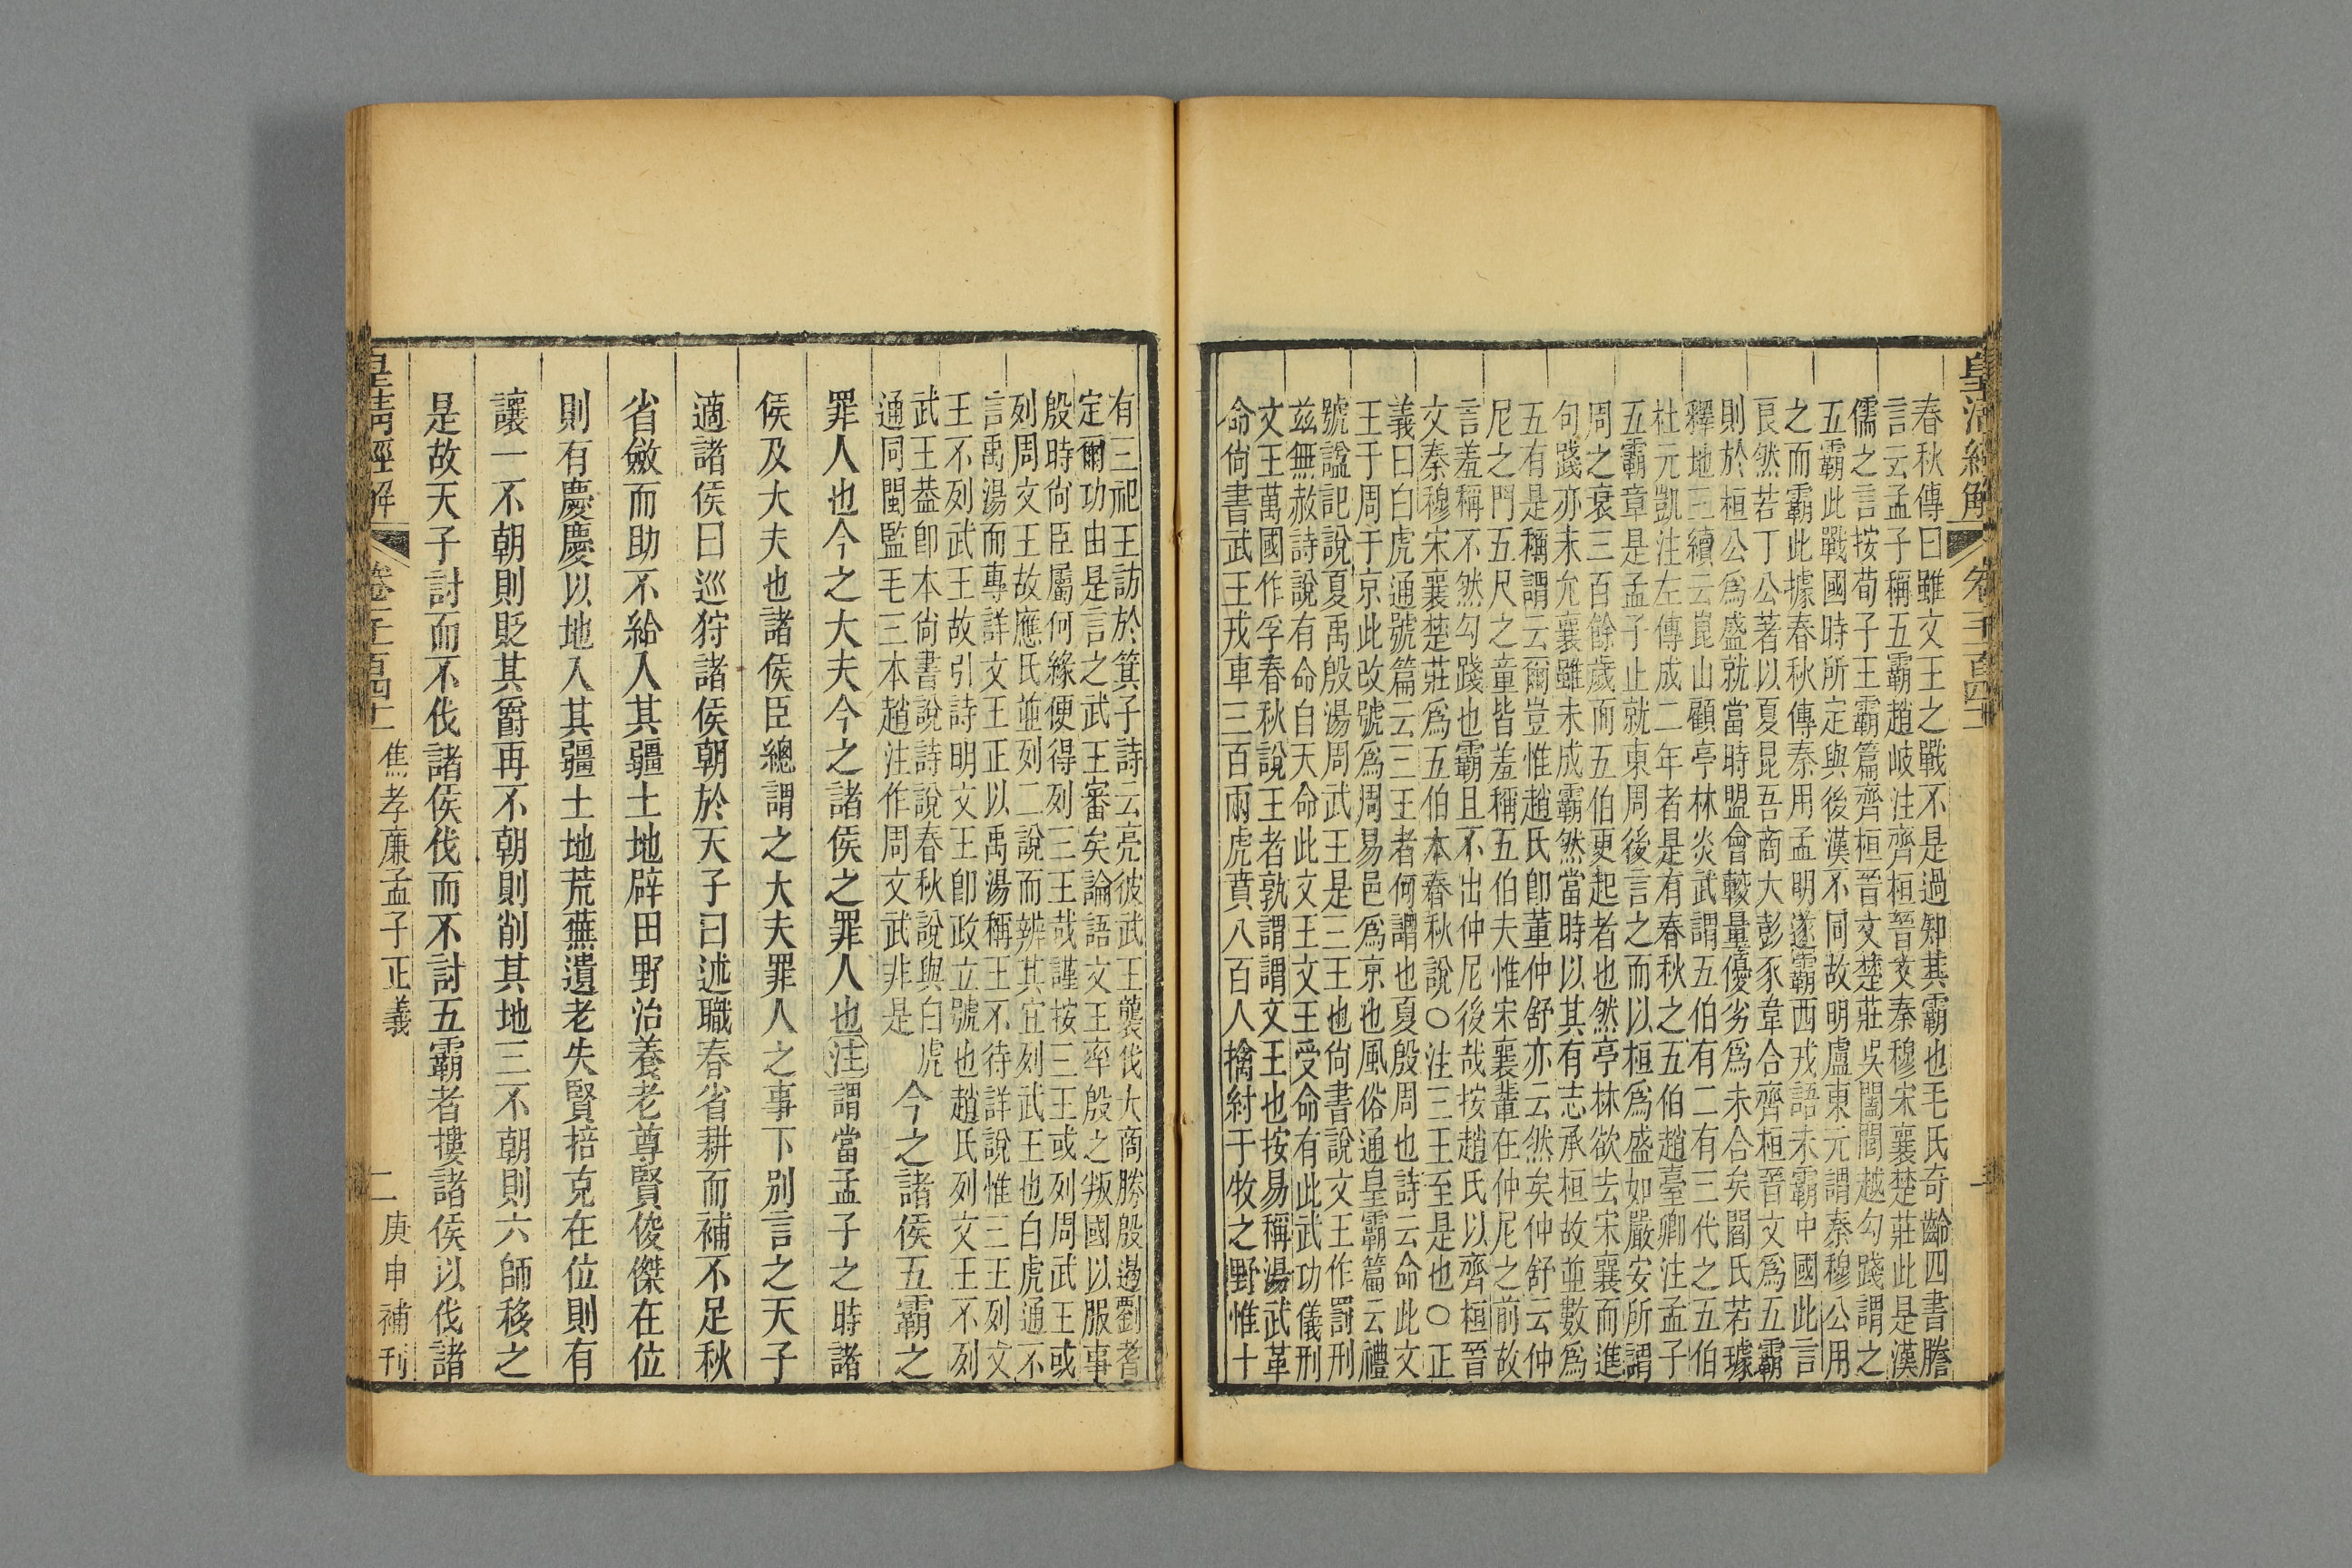 皇清經解 卷千百四十二
春秋傳曰雖文王之戰不是過知其霸也毛氏奇齡四書賸
言云孟子稱五霸趙岐注齊桓晉文秦穆宋襄楚莊此是漢
儒之言按荀子王霸篇齊桓晉文楚莊吳闔閭越勾踐謂之
五霸此戰國時所定與後漢不同故明盧東元謂秦穆公用
之而霸此據春秋傳秦用孟明遂霸西戎語未霸中國此言
良然若丁公著以夏昆吾商大彭豕韋合齊桓晉文爲五霸
則於桓公爲盛就當時盟會較量優劣爲未合矣閻氏若璩
釋地三續云崑山顧亭林炎武謂五伯有二有三代之五伯
杜元凱注左傳成二年者是有春秋之五伯趙臺卿注孟子
五霸章是孟子止就東周後言之而以桓爲盛如嚴安所謂
周之衰三百餘歲而五伯更起者也然亭林欲去宋襄而進
句踐亦未允襄雖未成霸然當時以其有志承桓故並數爲
五有是稱謂云爾豈惟趙氏卽董仲舒亦云然矣仲舒云仲
尼之門五尺之童皆羞稱五伯夫惟宋襄輩在仲尼之前故
言羞稱不然勾踐也霸且不出仲尼後哉按趙氏以齊桓晉
文秦穆宋襄楚莊爲五伯本春秋說○注三王至是也○正
義曰白虎通號篇云三王者何謂也夏殷周也詩云命此文
王于周于京此改號爲周易邑爲京也風俗通皇霸篇云禮
號諡記說夏禹殷湯周武王是三王也尙書說文王作罰刑
茲無赦詩說有命自天命此文王文王受命有此武功儀刑
文王萬國作孚春秋說王者孰謂謂文王也按易稱湯武革
命尙書武王戎車三百兩虎賁八百人擒紂于牧之野惟十
有三祀王訪於箕子詩云亮彼武王襲伐大商勝殷遏劉耆
定爾功由是言之武王審矣論語文王率殷之叛國以服事
殷時尙臣屬何緣便得列三王哉謹按三王或列周武王或
列周文王故應氏並列二說而辨其宜列武王也白虎通不
言禹湯而專詳文王正以禹湯稱王不待詳說惟三王列文
王不列武王故引詩明文王卽政立號也趙氏列文王不列
武王葢卽本尙書說詩說春秋說與白虎
通同閩監毛三本趙注作周文武非是
今之諸侯五霸之
罪人也今之大夫今之諸侯之罪人也注謂當孟子之時諸
侯及大夫也諸侯臣總謂之大夫罪人之事下別言之天子
適諸侯曰巡狩諸侯朝於天子曰述職春省耕而補不足秋
省斂而助不給入其疆土地辟田野治養老尊賢俊傑在位
則有慶慶以地入其疆土地荒蕪遺老失賢掊克在位則有
讓一不朝則貶其爵再不朝則削其地三不朝則六師移之
是故天子討而不伐諸侯伐而不討五霸者摟諸侯以伐諸
皇清經解 卷千百四十二 焦孝廉孟子正義 二 庚申補刊